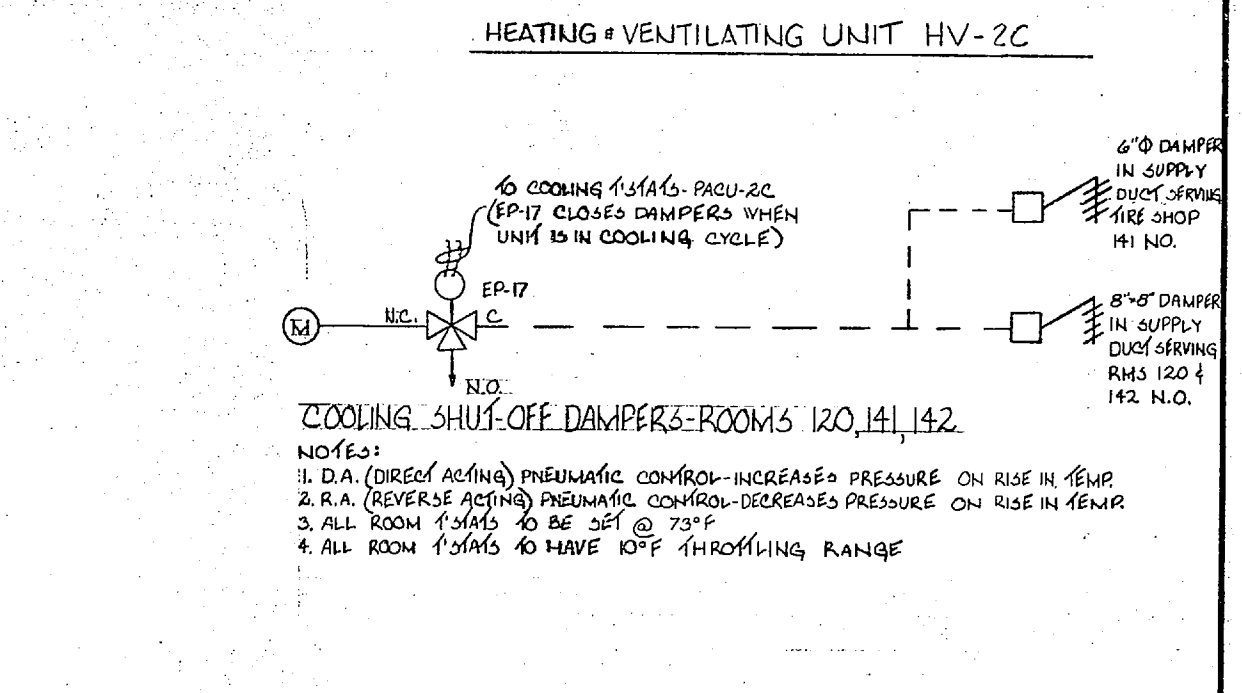 HEATING & VENTILATING UNIT HV-2C
TO COOLING T'STATS-PACU-2C
(EP-17 CLOSES DAMPERS WHEN
UNIT IS IN COOLING CYCLE)
EP-17
M
N.C.
C
N.O.
6"Φ DAMPER
IN SUPPLY
DUCT SERVING
TIRE SHOP
141 NO.
8"x8" DAMPER
IN SUPPLY
DUCT SERVING
RMS 120 &
142 N.O.
COOLING SHUT-OFF DAMPERS-ROOMS 120, 141, 142
NOTES:
1. D.A. (DIRECT ACTING) PNEUMATIC CONTROL-INCREASES PRESSURE ON RISE IN TEMP.
2. R.A. (REVERSE ACTING) PNEUMATIC CONTROL-DECREASES PRESSURE ON RISE IN TEMP.
3. ALL ROOM T'STATS TO BE SET @ 73°F
4. ALL ROOM T'STATS TO HAVE 10°F THROTTLING RANGE